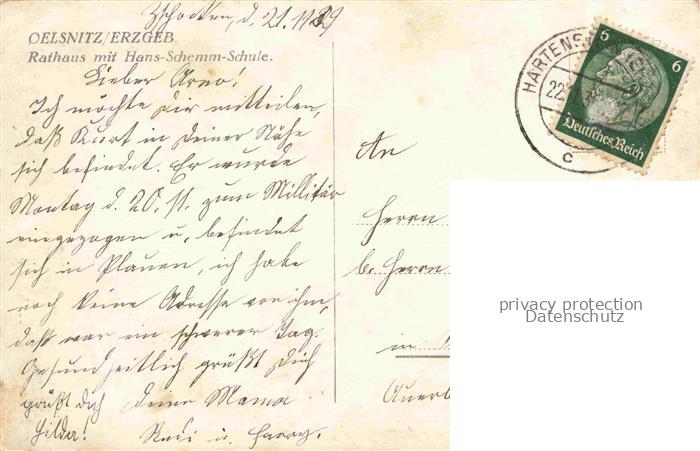 Zschocken, d. 21.11.39
OELSNITZ/ERZGEB.
Rathaus mit Hans-Schemm-Schule.
Lieber Arno!
Ich möchte Dir mitteilen,
daß Kurt in Deiner Nähe
sich befindet. Er wurde
Montag d. 20. 11. zum Millitär
eingezogen u. befindet
sich in Plauen, ich habe
noch keine Adresse von ihm,
daß war ein schwerer Tag.
Gesundheitlich grüßt Dich
grüßt dich Deine Mama
Hilda! Rudi u. Harry.
An
Herrn
b. Herrn
in
Auerb
HARTENS
22.
c
6 6
Deutsches Reich
privacy protection
Datenschutz